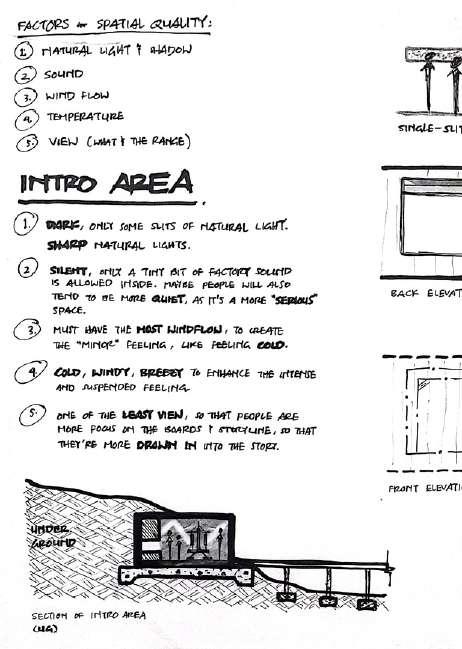 FACTORS for SPATIAL QUALITY:
1. NATURAL LIGHT & SHADOW
2. SOUND
3. WIND FLOW
4. TEMPERATURE
5. VIEW (WHAT & THE RANGE)
INTRO AREA.
1. DARK, ONLY SOME SLITS OF NATURAL LIGHT.
SHARP NATURAL LIGHTS.
2. SILENT, ONLY A TINY BIT OF FACTORY SOUND
IS ALLOWED INSIDE. MAYBE PEOPLE WILL ALSO
TEND TO BE MORE QUIET, AS IT'S A MORE "SERIOUS"
SPACE.
3. MUST HAVE THE MOST WINDFLOW, TO CREATE
THE "MINOR" FEELING, LIKE FEELING COLD.
4. COLD, WINDY, BREEZY TO ENHANCE THE INTENSE
AND SUSPENDED FEELING.
5. ONE OF THE LEAST VIEW, SO THAT PEOPLE ARE
MORE FOCUS ON THE BOARDS & STORYLINE, SO THAT
THEY'RE MORE DRAWN IN INTO THE STORY.
UNDER
GROUND
SECTION OF INTRO AREA
(UG)
SINGLE-SLIT
BACK ELEVAT
FRONT ELEVATI